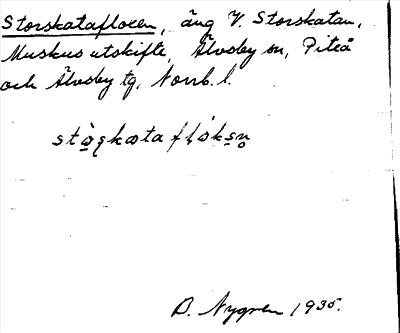 Storskatafloeen, äng V. Storskatan,
Muskus utskifte, Älvsby sn, Piteå
och Älvsby tg, Norrb. l.
B. Nygren 1935.